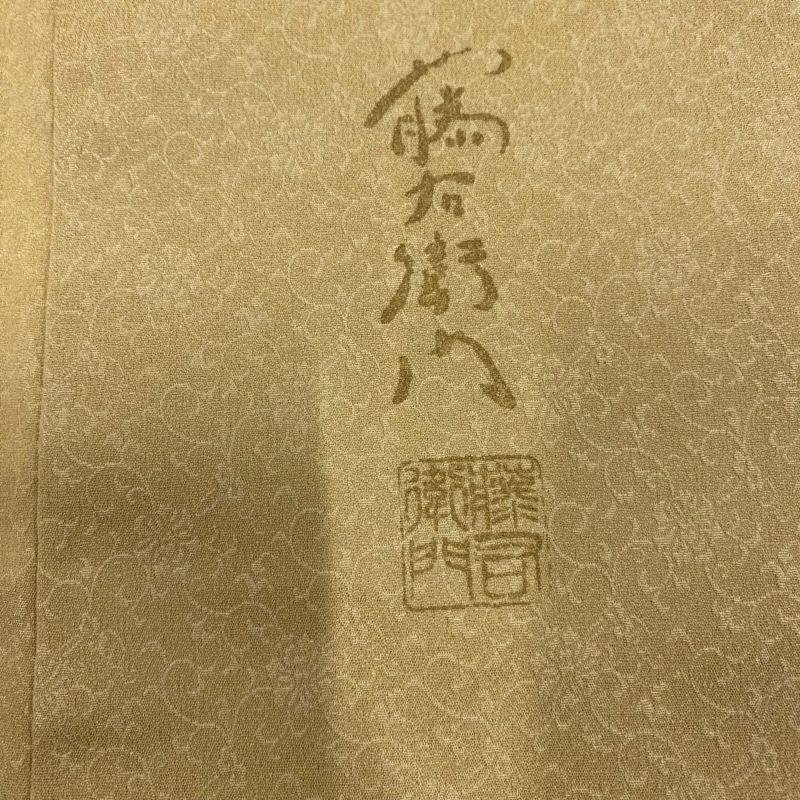 藤右衛門
藤右
衛門